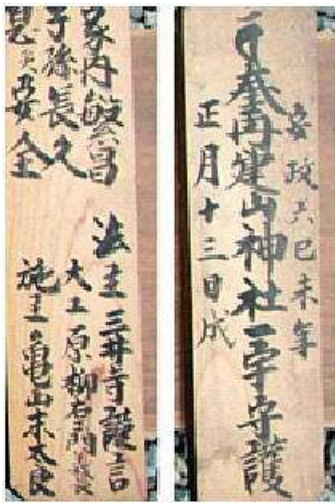 安政六己未年
奉再建山神社一宇守護
正月十三日成
家内繁昌
子孫長久
安全
法主三井寺護言
大工原柳右衛門
施主亀山末太良